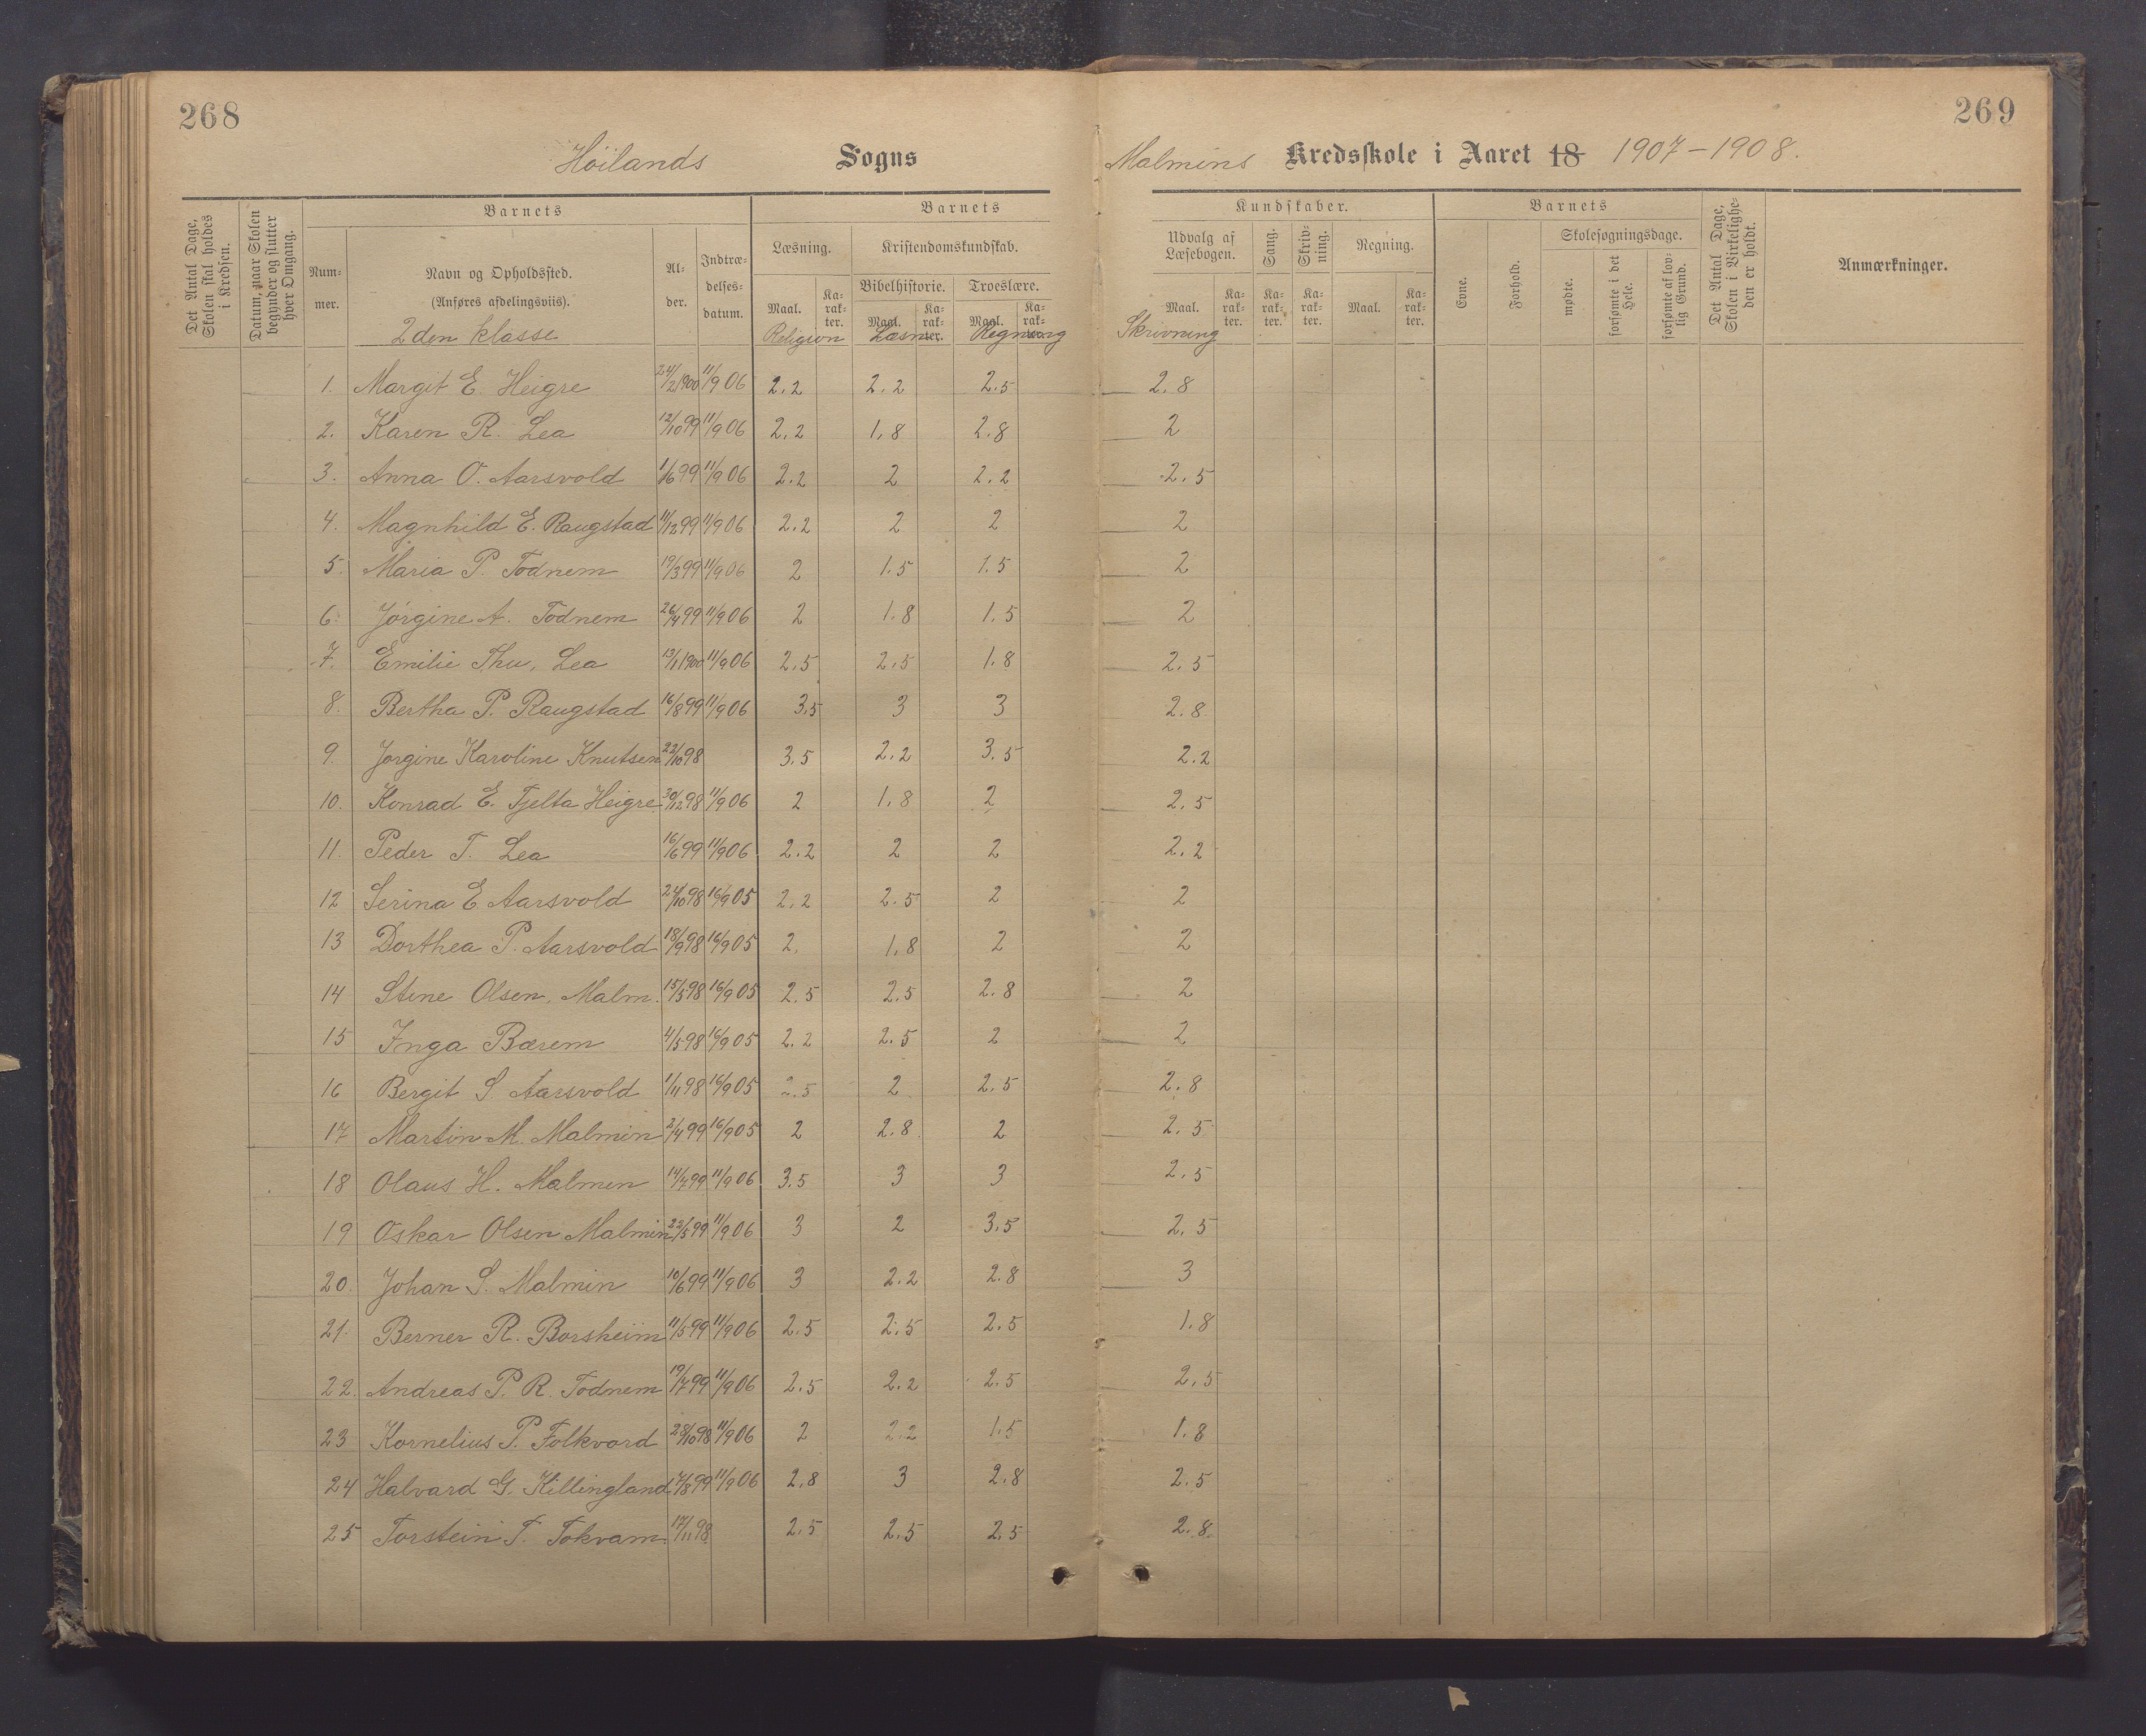 268
269
Höilands Sogns
Malmins Kredsskole i Aaret 18 1907-1908.
Det Antal Dage, Skolen skal holdes i Kredsen.
Datum, naar Skolen begynder og slutter hver Omgang.
Barnets
Barnets
Kundskaber.
Barnets
Num-mer.
Navn og Opholdssted.
(Anføres afdelingsviis).
Al-der.
Indtræ-delses-datum.
Læsning.
Kristendomskundskab.
Bibelhistorie.
Troeslære.
Udvalg af Læsebogen.
Sang.
Skriv-ning.
Regning.
Evne.
Forhold.
Skolesøgningsdage.
mødte.
forsømte i det Hele.
forsømte af lov-lig Grund.
Det Antal Dage, Skolen i Virkelighe-den er holdt.
Anmærkninger.
Maal. Ka-rak-ter. Maal. Ka-rak-ter. Maal. Ka-rak-ter. Maal. Ka-rak-ter. Ka-rak-ter. Ka-rak-ter. Maal. Ka-rak-ter.
2den klasse Religion Læsn. Regning Skrivning
1. Margit E. Heigre 24/2 1900 11/9 06 2.2 2.2 2.5 2.8
2. Karen R. Lea 12/10 99 11/9 06 2.2 1.8 2.8 2
3. Anna O. Aarsvold 1/6 99 11/9 06 2.2 2 2.2 2.5
4. Magnhild E. Raugstad 11/12 99 11/9 06 2.2 2 2 2
5. Maria P. Todnem 19/3 99 11/9 06 2 1.5 1.5 2
6. Jörgine A. Todnem 26/4 99 11/9 06 2 1.8 1.5 2
7. Emilie Thu, Lea 13/1 1900 11/9 06 2.5 2.5 1.8 2.5
8. Bertha P. Raugstad 16/8 99 11/9 06 3.5 3 3 2.8
9. Jorgine Karoline Knutsen 22/10 98 3.5 2.2 3.5 2.2
10. Konrad E. Tjelta Heigre 30/12 98 11/9 06 2 1.8 2 2.5
11. Peder T. Lea 16/6 99 11/9 06 2.2 2 2 2.2
12 Serina E Aarsvold 24/10 98 16/9 05 2.2 2.5 2 2
13 Dorthea P. Aarsvold 18/9 98 16/9 05 2. 1.8 2 2
14 Stine Olsen, Malm. 15/5 98 16/9 05 2.5 2.5 2.8 2
15 Inga Bærem 4/5 98 16/9 05 2.2 2.5 2 2
16 Bergit S Aarsvold 1/11 98 16/9 05 2.5 2 2.5 2.8
17 Martin M. Malmin 2/4 99 16/9 05 2 2.8 2 2.5
18 Olaus H. Malmen 14/7 99 11/9 06 3.5 3 3 2.5
19 Oskar Olsen Malmin 22/5 99 11/9 06 3 2 3.5 2.5
20. Johan S. Malmin 10/6 99 11/9 06 3 2.2 2.8 3
21. Berner R. Borsheim 11/5 99 11/9 06 2.5 2.5 2.5 1.8
22. Andreas P. R. Todnem 19/7 99 11/9 06 2.5 2.2 2.5 2.5
23 Kornelius P. Folkvord 28/10 98 11/9 06 2 2.2 1.5 1.8
24 Halvard G. Killingland 7/8 99 11/9 06 2.8 3 2.8 2.5
25 Torstein T. Tokvam 17/11 98 2.5 2.5 2.5 2.8